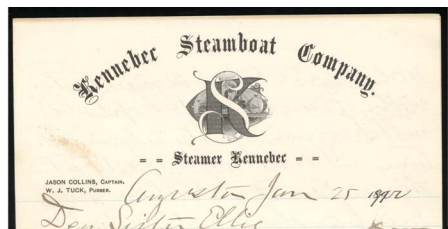 Kennebec Steamboat Company.
= = Steamer Kennebec = =
JASON COLLINS, CAPTAIN.
W. J. TUCK, PURSER.
Augusta Jan 25
Dear Sister Ellie